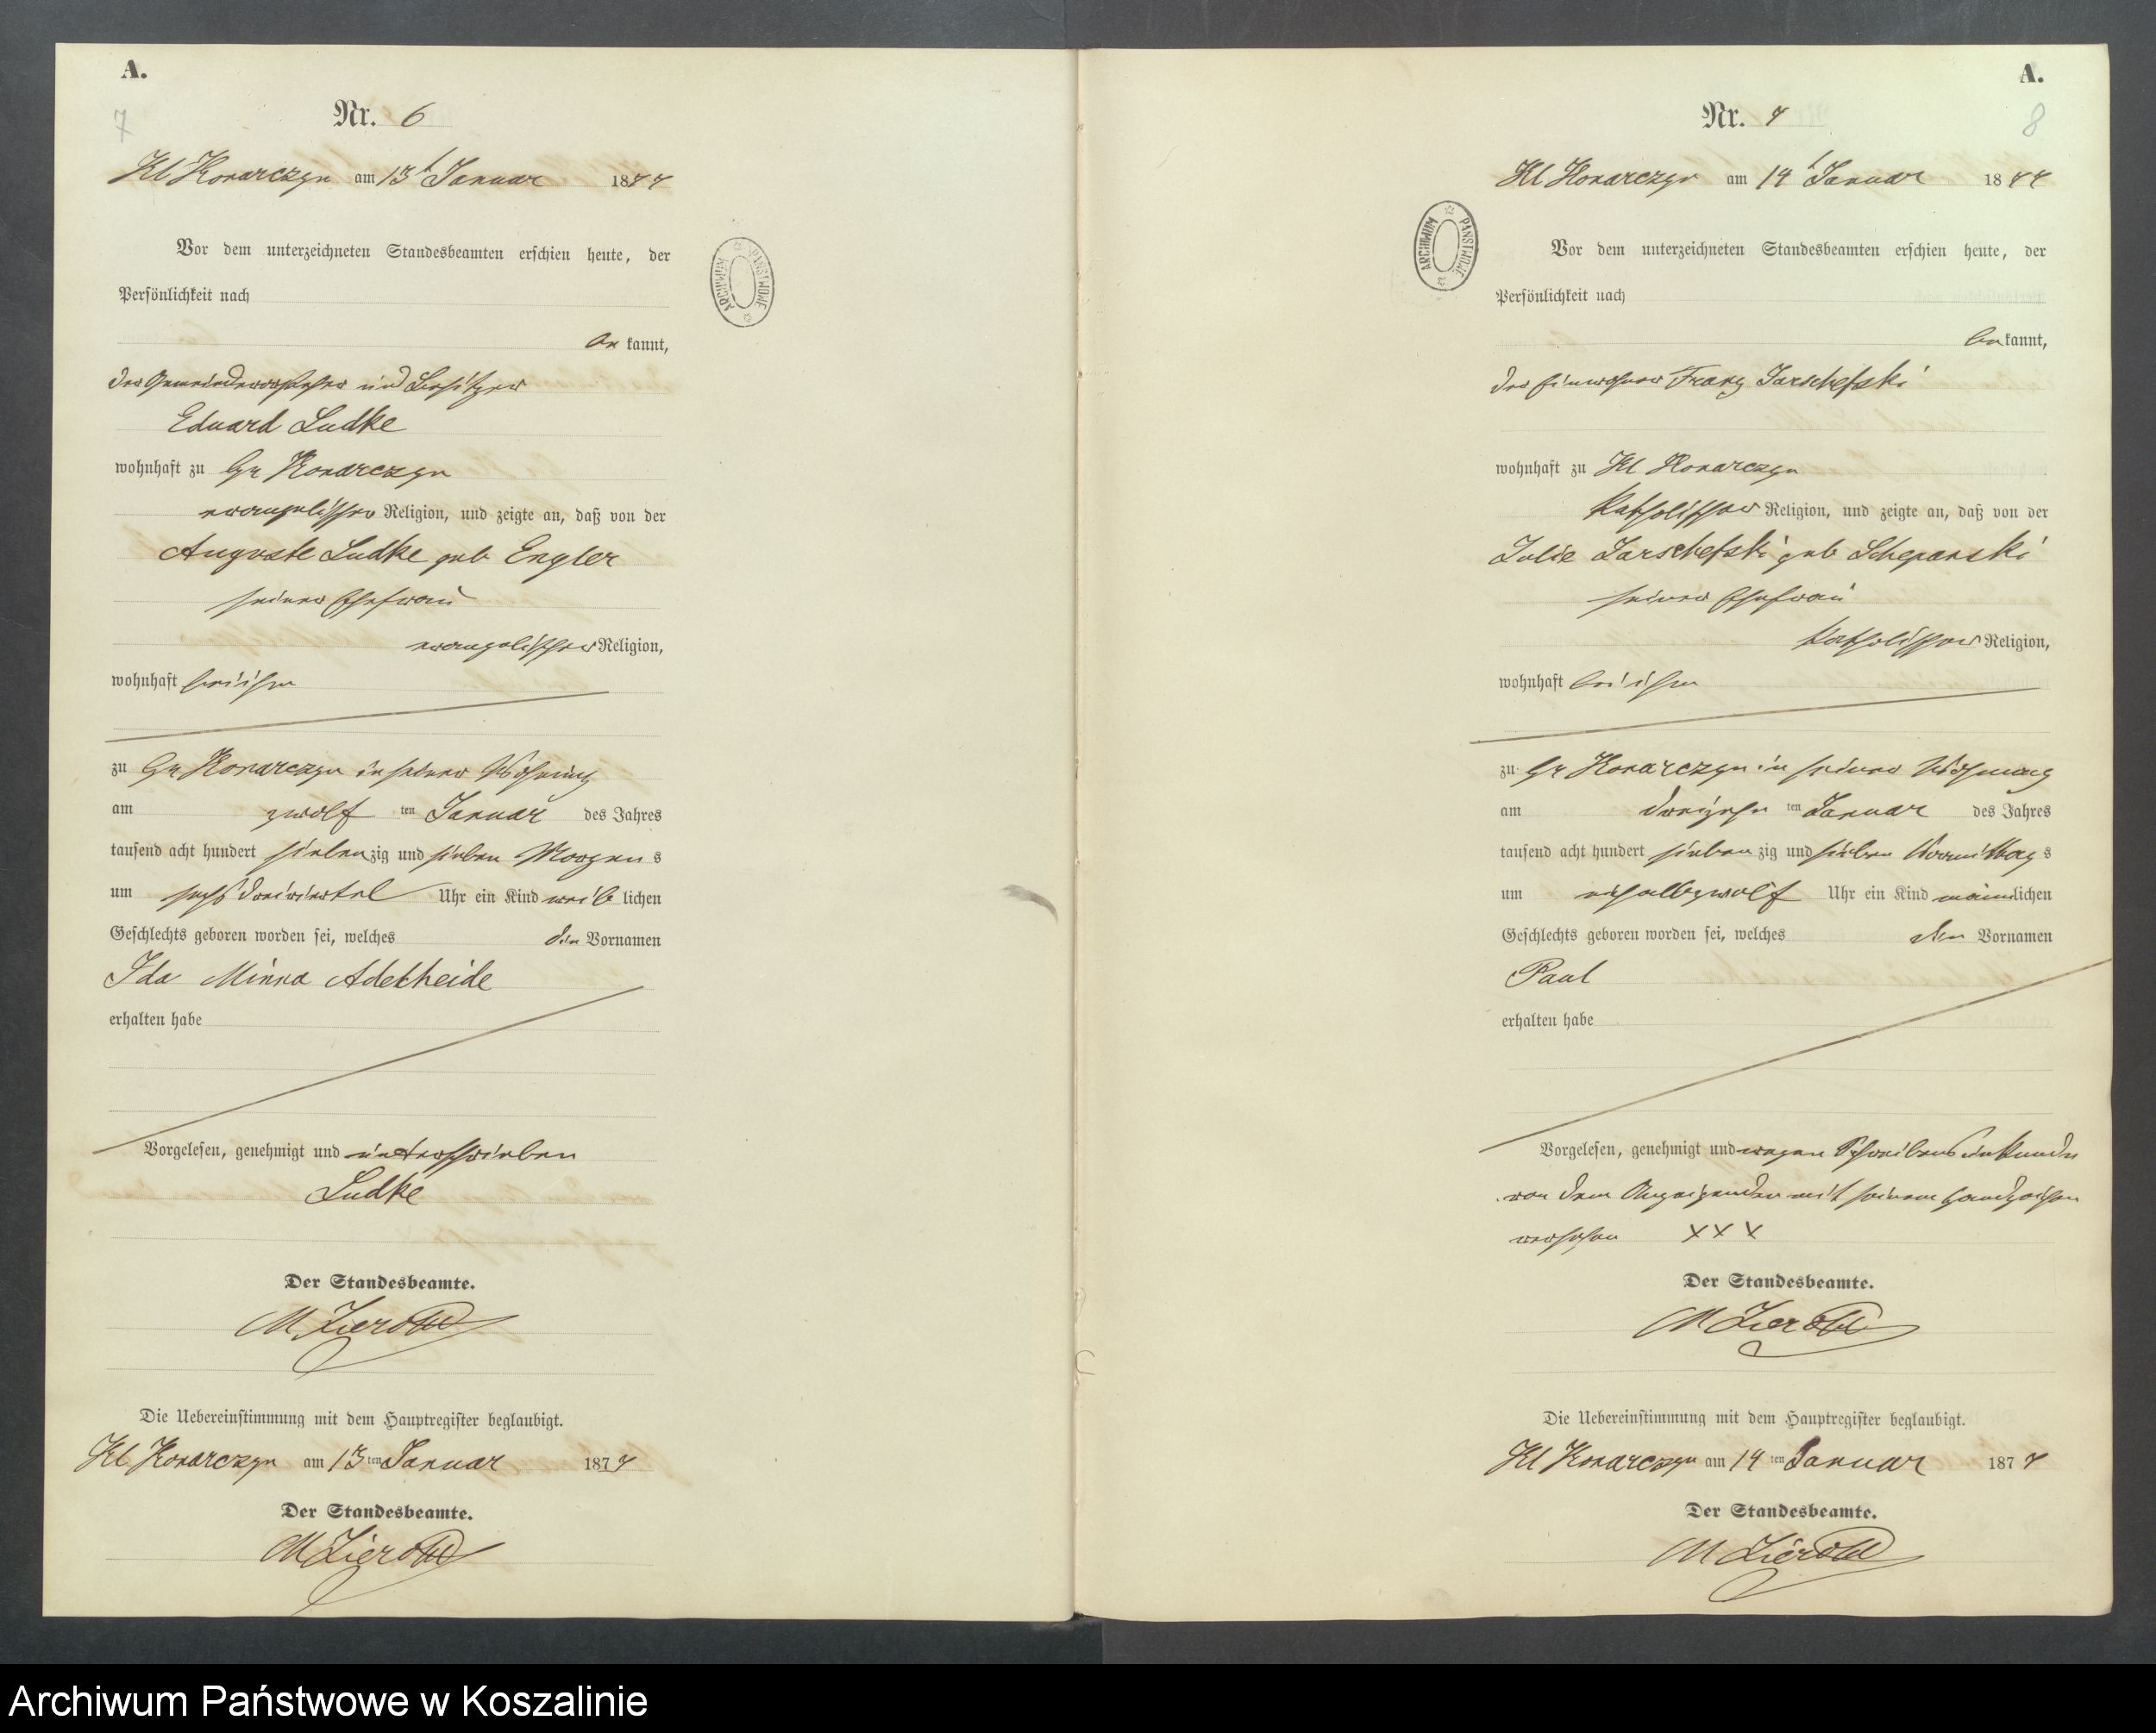 A.
7
Nr. 6
Kl Konarczyn am 13t Januar 1877
Vor dem unterzeichneten Standesbeamten erschien heute, der
Persönlichkeit nach
be kannt,
der Gemeindevorsteher und Besitzer
Eduard Ludke
wohnhaft zu Gr Konarczyn
evangelischer Religion, und zeigte an, daß von der
Auguste Ludke geb Engler
seiner Ehefrau
evangelischer Religion,
wohnhaft bei ihm
zu Gr Konarczyn in seiner Wohnung
am zwölf ten Januar des Jahres
tausend acht hundert siebenzig und sieben Morgens
um sechs dreiviertel Uhr ein Kind weiblichen
Geschlechts geboren worden sei, welches den Vornamen
Ida Minna Adelheide
erhalten habe
Vorgelesen, genehmigt und unterschrieben
Ludke
Der Standesbeamte.
Die Uebereinstimmung mit dem Hauptregister beglaubigt.
Kl Konarczyn am 13 ten Januar 1877
Der Standesbeamte.
ARCHIWUM PAŃSTWOWE
A.
8
Nr. 7
Kl Konarczyn am 14t Januar 1877
Vor dem unterzeichneten Standesbeamten erschien heute, der
Persönlichkeit nach
bekannt,
der Einwohner Franz Jarschefski
wohnhaft zu Kl Konarczyn
katholischer Religion, und zeigte an, daß von der
Julie Jarschefski geb Scheparski
seiner Ehefrau
katholischer Religion,
wohnhaft bei ihm
zu Gr Konarczyn in seiner Wohnung
am dreizehn ten Januar des Jahres
tausend acht hundert siebenzig und sieben Vormittags
um einhalbzwölf Uhr ein Kind männlichen
Geschlechts geboren worden sei, welches den Vornamen
Paul
erhalten habe
Vorgelesen, genehmigt und wegen Schreibensunkunde
von dem Anzeigenden mit seinem Handzeichen
versehen XXX
Der Standesbeamte.
Die Uebereinstimmung mit dem Hauptregister beglaubigt.
Kl Konarczyn am 14 ten Januar 1877
Der Standesbeamte.
ARCHIWUM PAŃSTWOWE
Archiwum Państwowe w Koszalinie